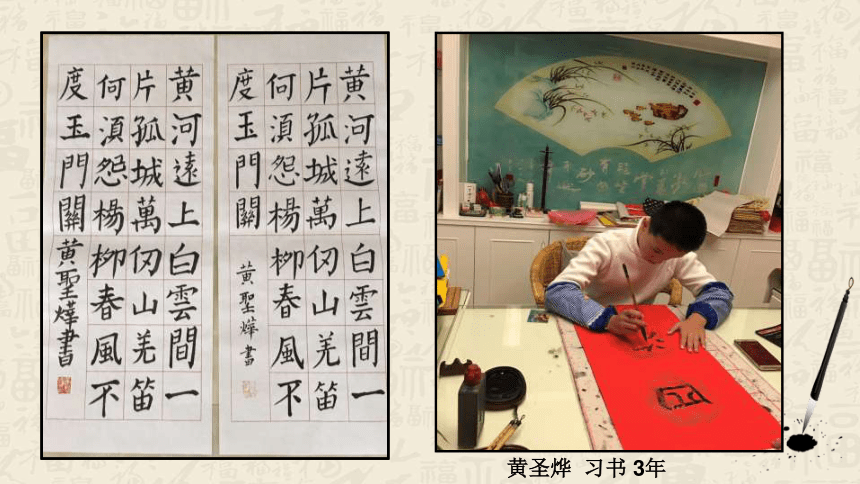 黄河遠上白雲間一
片孤城萬仞山羌笛
何湏怨楊柳春風不
度玉門關
黄聖燁書
黄河遠上白雲間一
片孤城萬仞山羌笛
何湏怨楊柳春風不
度玉門關
黄聖燁書
黄圣烨 习书 3年